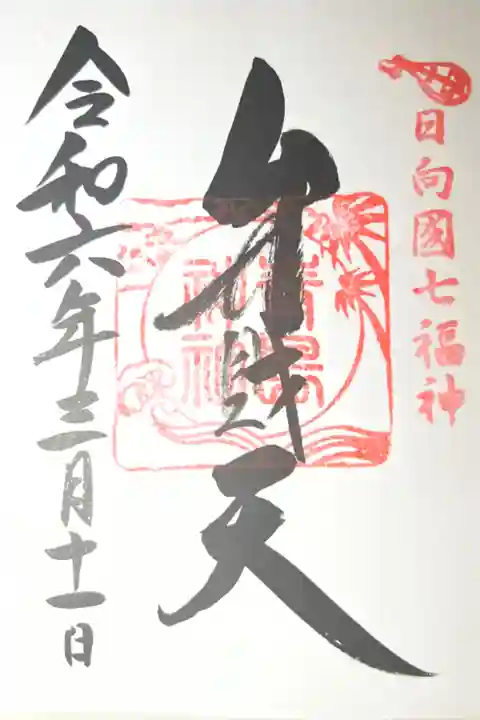 日向國七福神
弁財天
青島神社
令和六年三月十一日